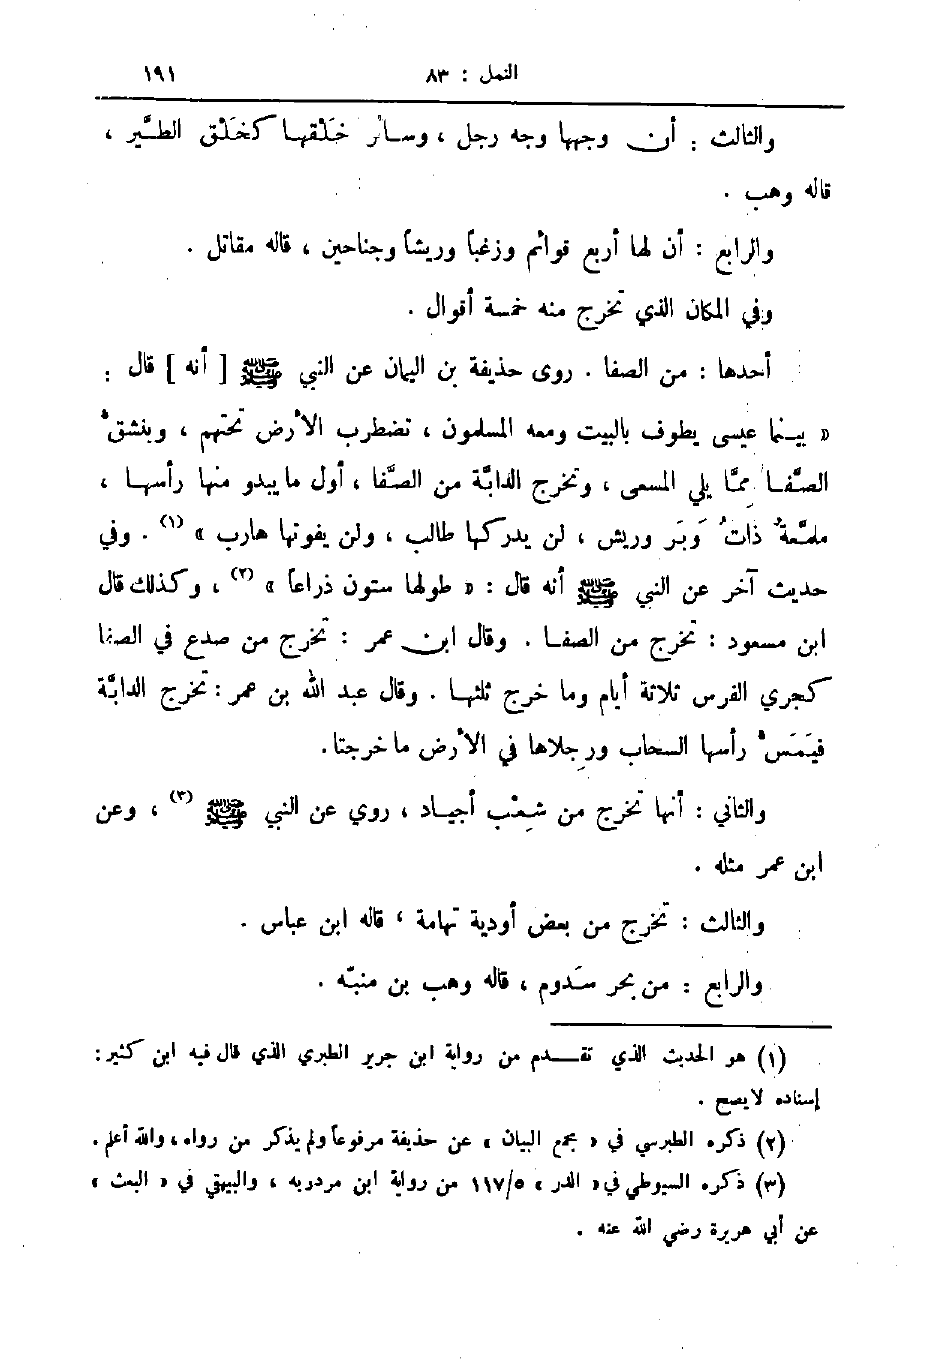 النمل : ٨٣ ١٩١
والثالث : أن وجهها وجه رجل ، وسائر خَلْقها كخَلْق الطَّير ،
قاله وهب .
والرابع : أن لها أربع قوائم وزغباً وريشاً وجناحين ، قاله مقاتل .
وفي المكان الذي تخرج منه خمسة أقوال .
أحدها : من الصفا . روى حذيفة بن اليمان عن النبي ﷺ [ أنه ] قال :
« بينما عيسى يطوف بالبيت ومعه المسلمون ، تضطرب الأرض تحتهم ، وينشق
الصَّفا ممَّا يلي المسعى ، وتخرج الدابَّة من الصَّفا ، أول ما يبدو منها رأسها ،
ملمَّعةٌ ذاتُ وَبَر وريش ، لن يدركها طالب ، ولن يفوتها هارب » (١) . وفي
حديث آخر عن النبي ﷺ أنه قال : « طولها ستون ذراعاً » (٢) ، وكذلك قال
ابن مسعود : تخرج من الصفا . وقال ابن عمر : تخرج من صدع في الصفا
كجري الفرس ثلاثة أيام وما خرج ثلثها . وقال عبد الله بن عمر : تخرج الدابَّة
فيَمَسُّ رأسها السحاب ورجلاها في الأرض ما خرجتا.
والثاني : أنها تخرج من شِعْب أجياد ، روي عن النبي ﷺ (٣) ، وعن
ابن عمر مثله .
والثالث : تخرج من بعض أودية تهامة ، قاله ابن عباس .
والرابع : من بحر سَدوم ، قاله وهب بن منبّه .
(١) هو الحديث الذي تقدم من رواية ابن جرير الطبري الذي قال فيه ابن كثير :
إسناده لا يصح .
(٢) ذكره الطبرسي في « مجمع البيان » عن حذيفة مرفوعاً ولم يذكر من رواه ، والله أعلم .
(٣) ذكره السيوطي في « الدر » ١١٧/٥ من رواية ابن مردويه ، والبيهقي في « البعث »
عن أبي هريرة رضي الله عنه .